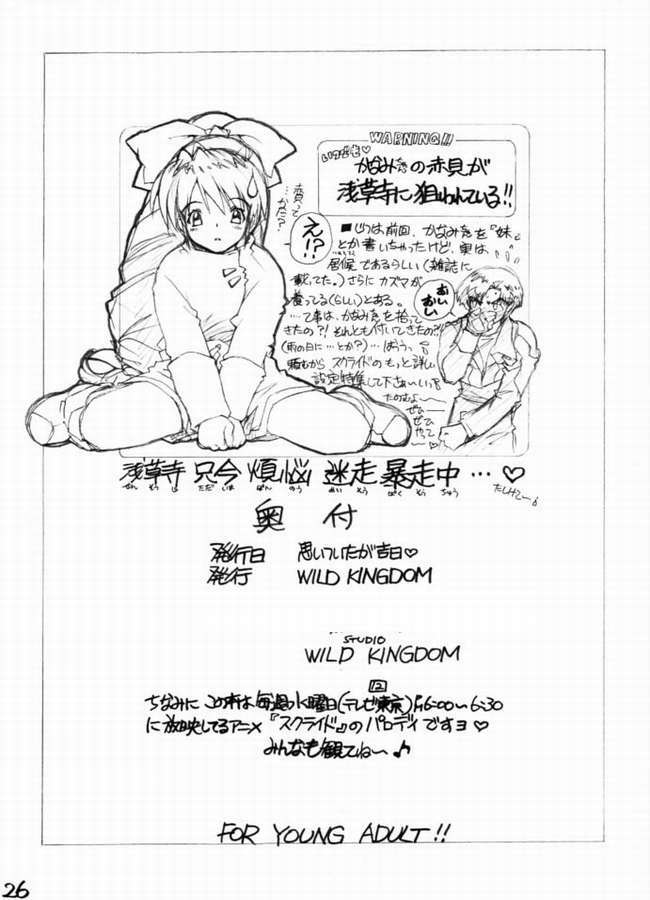 WARNING!!!
いつでも♡
かなみたんの赤貝が
浅草寺に狙われている!!
…貝って
かた?…
え!?
■じつは前回、かなみたんを『妹』
とか書いちゃったけど、実は
居候であるらしい(雑誌に
載ってた。)さらに カズマが
養ってる(らしい)とある。
…て事は、かなみたんを拾って
きたの?!それとも付いてきたの?!
(雨の日に…とか?)…ばうっ、
頼むから スクライドの もっと詳しい
設定特集して下さぁいっ!
たのむよ〜
ぜひ〜
ぜひ
やって〜
おい
おい
浅草寺 只今 煩悩 迷走 暴走中 …♡
せん そう じ ただ いま ぼん のう めい そう ぼく そう ちゅう
たしけて〜♪
奥付
発行日 思いついたが吉日♡
発行 WILD KINGDOM
STUDIO
WILD KINGDOM
ちなみに この本は 毎週水曜日(テレビ東京 12)PM6:00〜6:30
に放映してるアニメ『スクライド』のパロディですヨ♡
みんなも観てね〜♪
FOR YOUNG ADULT!!
26